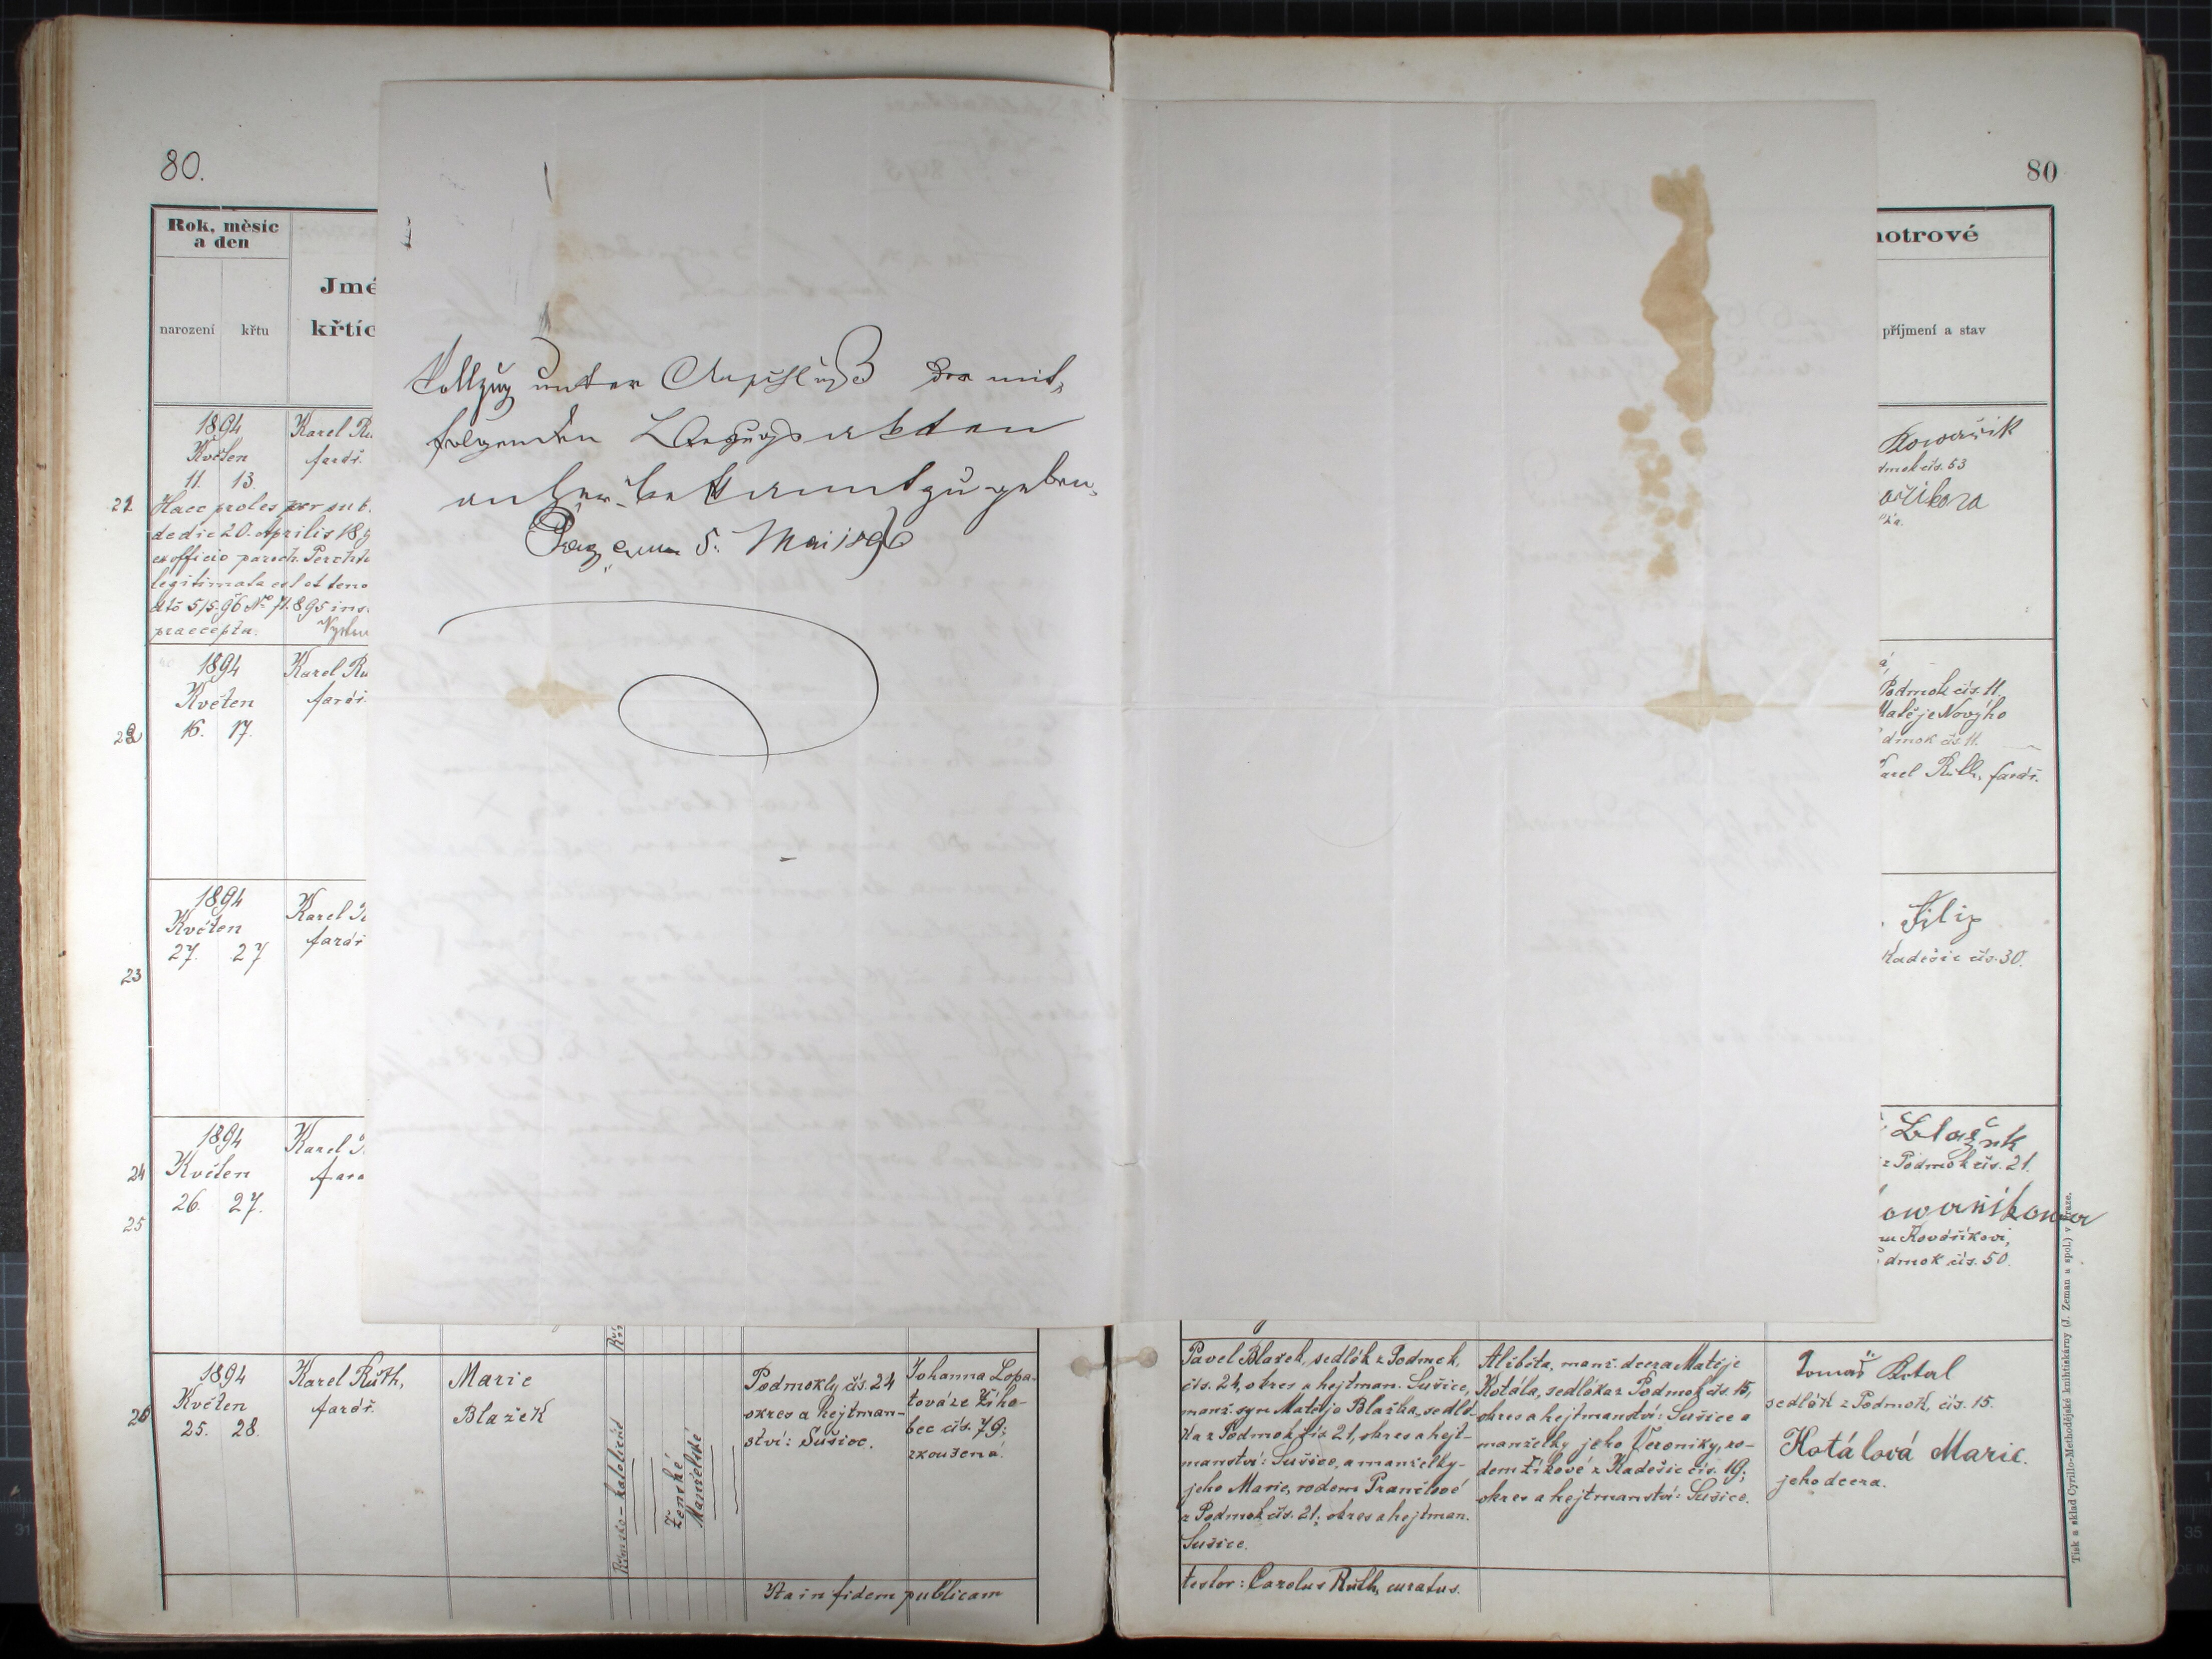 80.
80
Rok, měsíc
a den
narození
křtu
Jmé
křtíc
notrové
příjmení a stav
21
1894
Květen
11. 13.
Haec proles per sub.
de dic 20. Aprilis 189
ex officio paroch.
legitimata est et teno
dto 5/5. 96 No 71.895 ins.
praecepta.
Karel Rů
farář.
Vollzug unter Anschluß der mit-
folgenden Bezugsakten
anher bekanntzugeben.
Prag, am 5. Mai 1896
Kovařik
dmok čís. 53
22
1894
Květen
16. 17.
Karel Rů
farář.
á,
Podmok čís. 11.
Matěje Nového
dmok čís. 11.
Karel Růth, farář.
23
1894
Květen
27. 27
Karel
farář
Filip
Kadešic čís. 30.
24
25
1894
Květen
26. 27.
Karel
fara
Blažek
z Podmok čís. 21.
owaříkowa
mu Kovaříkovi,
dmok čís. 50.
26
1894
Květen
25. 28.
Karel Růth,
farář.
Marie
Blažek
Římsko-katolické
Ženské
Manželské
Podmokly čís. 24
okres a hejtman-
ství: Sušice.
Johanna Lopa-
tová ze Žiho-
bec čís. 79;
zkoušená.
Pavel Blažek, sedlák z Podmok,
čís. 24, okres a hejtman. Sušice,
manž. syn Matěje Blažka, sedlá-
ka z Podmok čís. 21, okres a hejt-
manství: Sušice, a manželky
jeho Marie, rodem Prančlové
z Podmok čís. 21; okres a hejtman.
Sušice.
Alžběta, manž. dcera Matěje
Kotála, sedláka z Podmok čís. 15,
okres a hejtmanství: Sušice a
manželky jeho Veroniky, ro-
dem Žíkové z Kadešic čís. 19;
okres a hejtmanství: Sušice.
Tomáš Kotal
sedlák z Podmok, čís. 15.
Kotálová Marie.
jeho dcera.
Ita in fidem publicam
testor: Carolus Růth, curatus.
Tisk a sklad Cyrillo-Methodějské knihtiskárny (J. Zeman a spol.) v Praze.